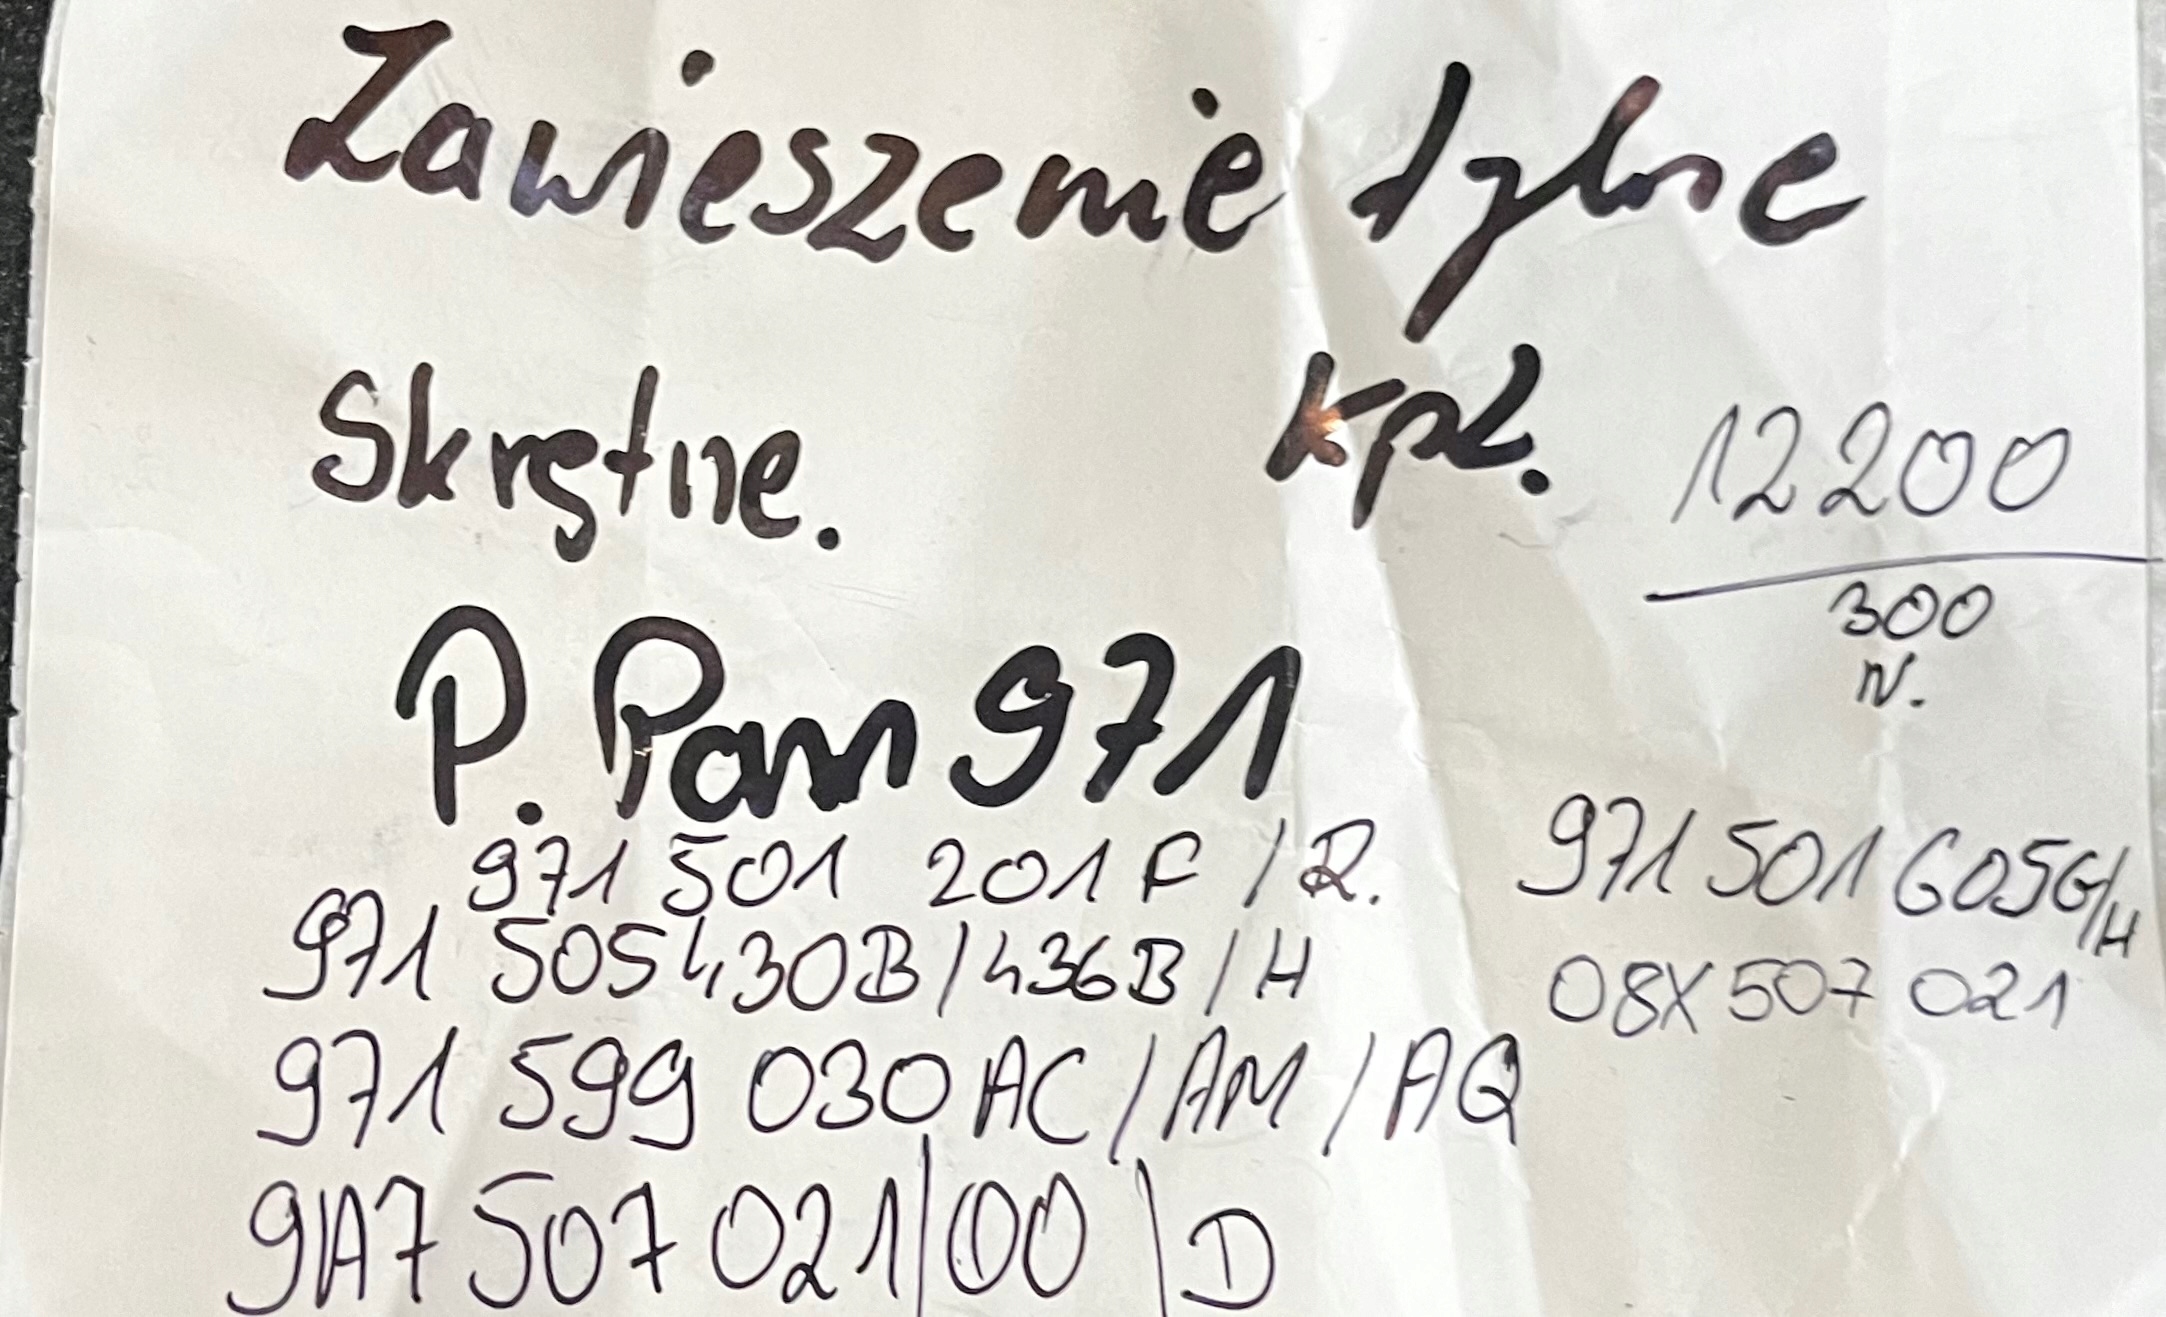 Zawieszenie tylne
Skrętne. kpl.
12200
300
N.
P. Pam 971
971 501 201 F / R.
971 505 430B / 436B / H
971 599 030 AC / AM / AQ
9A7 507 021 / 00 / D
971 501 605G/H
08X 507 021